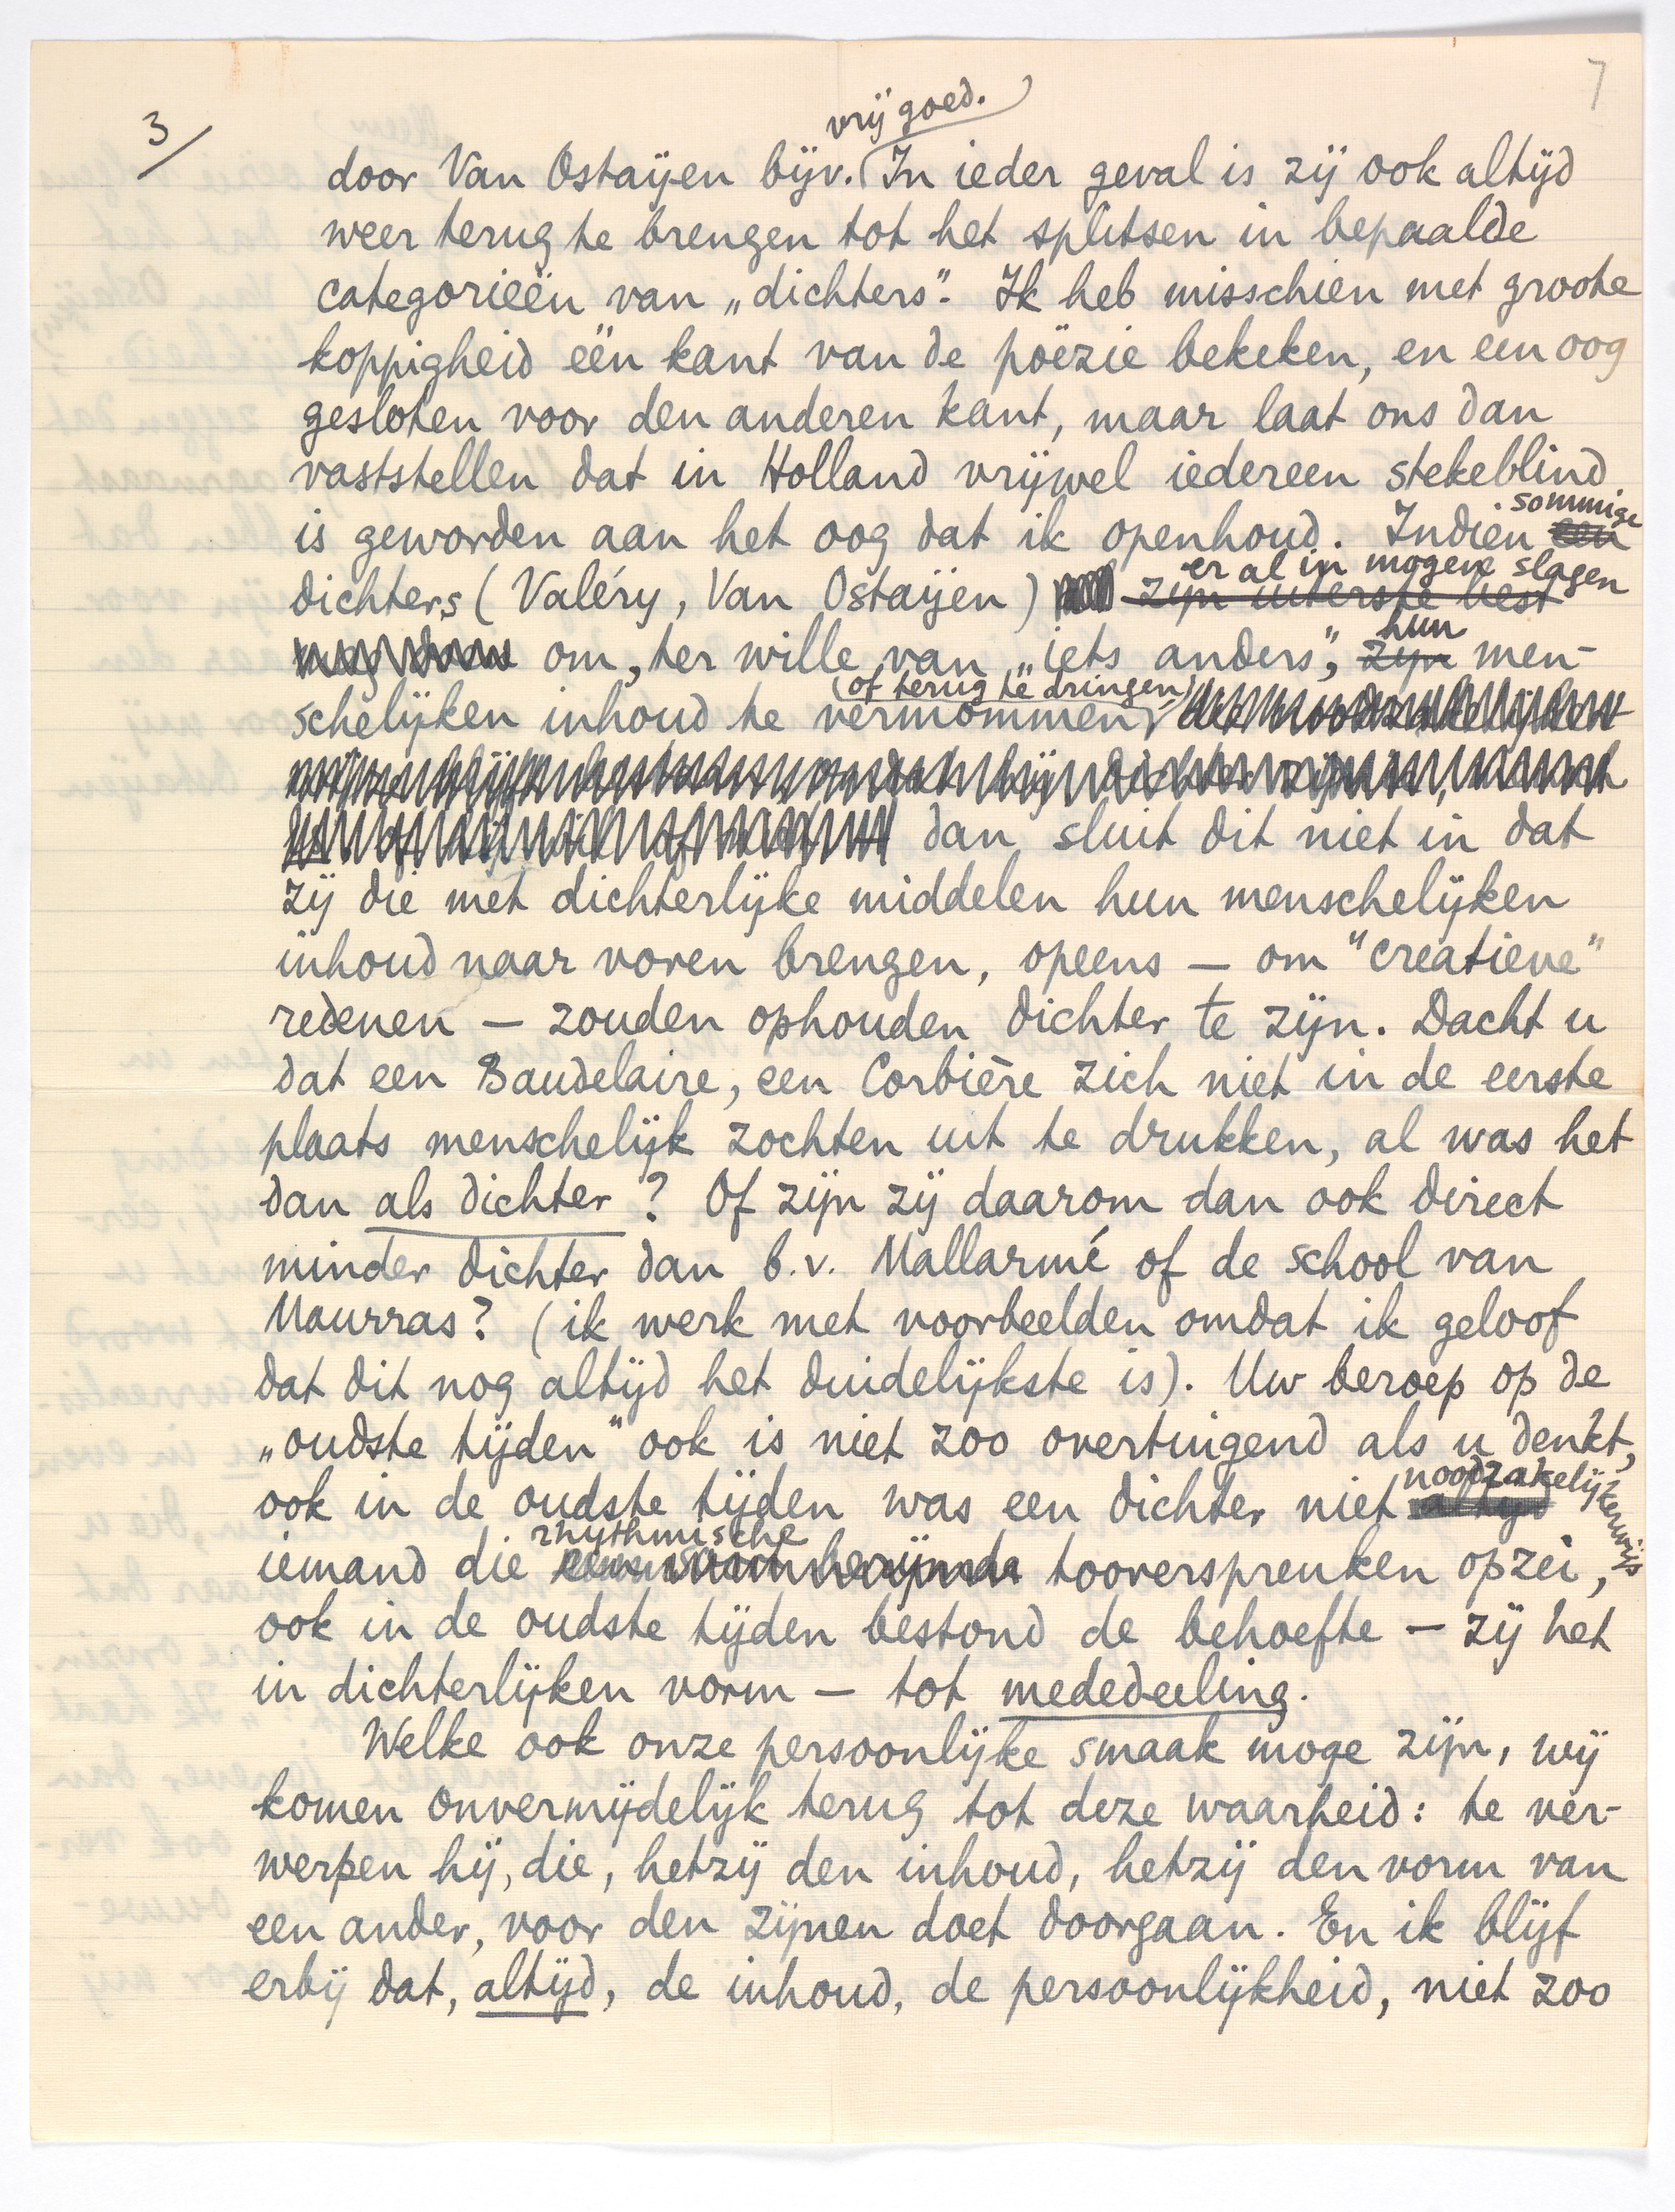 7
3/
vrij goed.
door Van Ostaijen bijv. In ieder geval is zij ook altijd
weer terug te brengen tot het splitsen in bepaalde
categorieën van „dichters". Ik heb misschien met groote
koppigheid één kant van de poëzie bekeken, en een oog
gesloten voor den anderen kant, maar laat ons dan
vaststellen dat in Holland vrijwel iedereen stekeblind
is geworden aan het oog dat ik openhoud. Indien een sommige
dichters (Valéry, Van Ostaijen) zijn uiterste best er al in mogen slagen
om, ter wille van „iets anders", zijn hun men-
schelijken inhoud te vermommen (of terug te dringen),
dan sluit dit niet in dat
zij die met dichterlijke middelen hun menschelijken
inhoud naar voren brengen, opeens — om "creatieve"
redenen — zouden ophouden dichter te zijn. Dacht u
dat een Baudelaire, een Corbière zich niet in de eerste
plaats menschelijk zochten uit te drukken, al was het
dan als dichter? Of zijn zij daarom dan ook direct
minder dichter dan b.v. Mallarmé of de school van
Maurras? (ik werk met voorbeelden omdat ik geloof
dat dit nog altijd het duidelijkste is). Uw beroep op de
„oudste tijden" ook is niet zoo overtuigend als u denkt,
ook in de oudste tijden was een dichter niet altijd noodzakelijkerwijs
iemand die rhythmische tooverspreuken opzei,
ook in de oudste tijden bestond de behoefte — zij het
in dichterlijken vorm — tot mededeeling.
Welke ook onze persoonlijke smaak moge zijn, wij
komen onvermijdelijk terug tot deze waarheid: te ver-
werpen hij, die, hetzij den inhoud, hetzij den vorm van
een ander, voor den zijnen doet doorgaan. En ik blijf
erbij dat, altijd, de inhoud, de persoonlijkheid, niet zoo